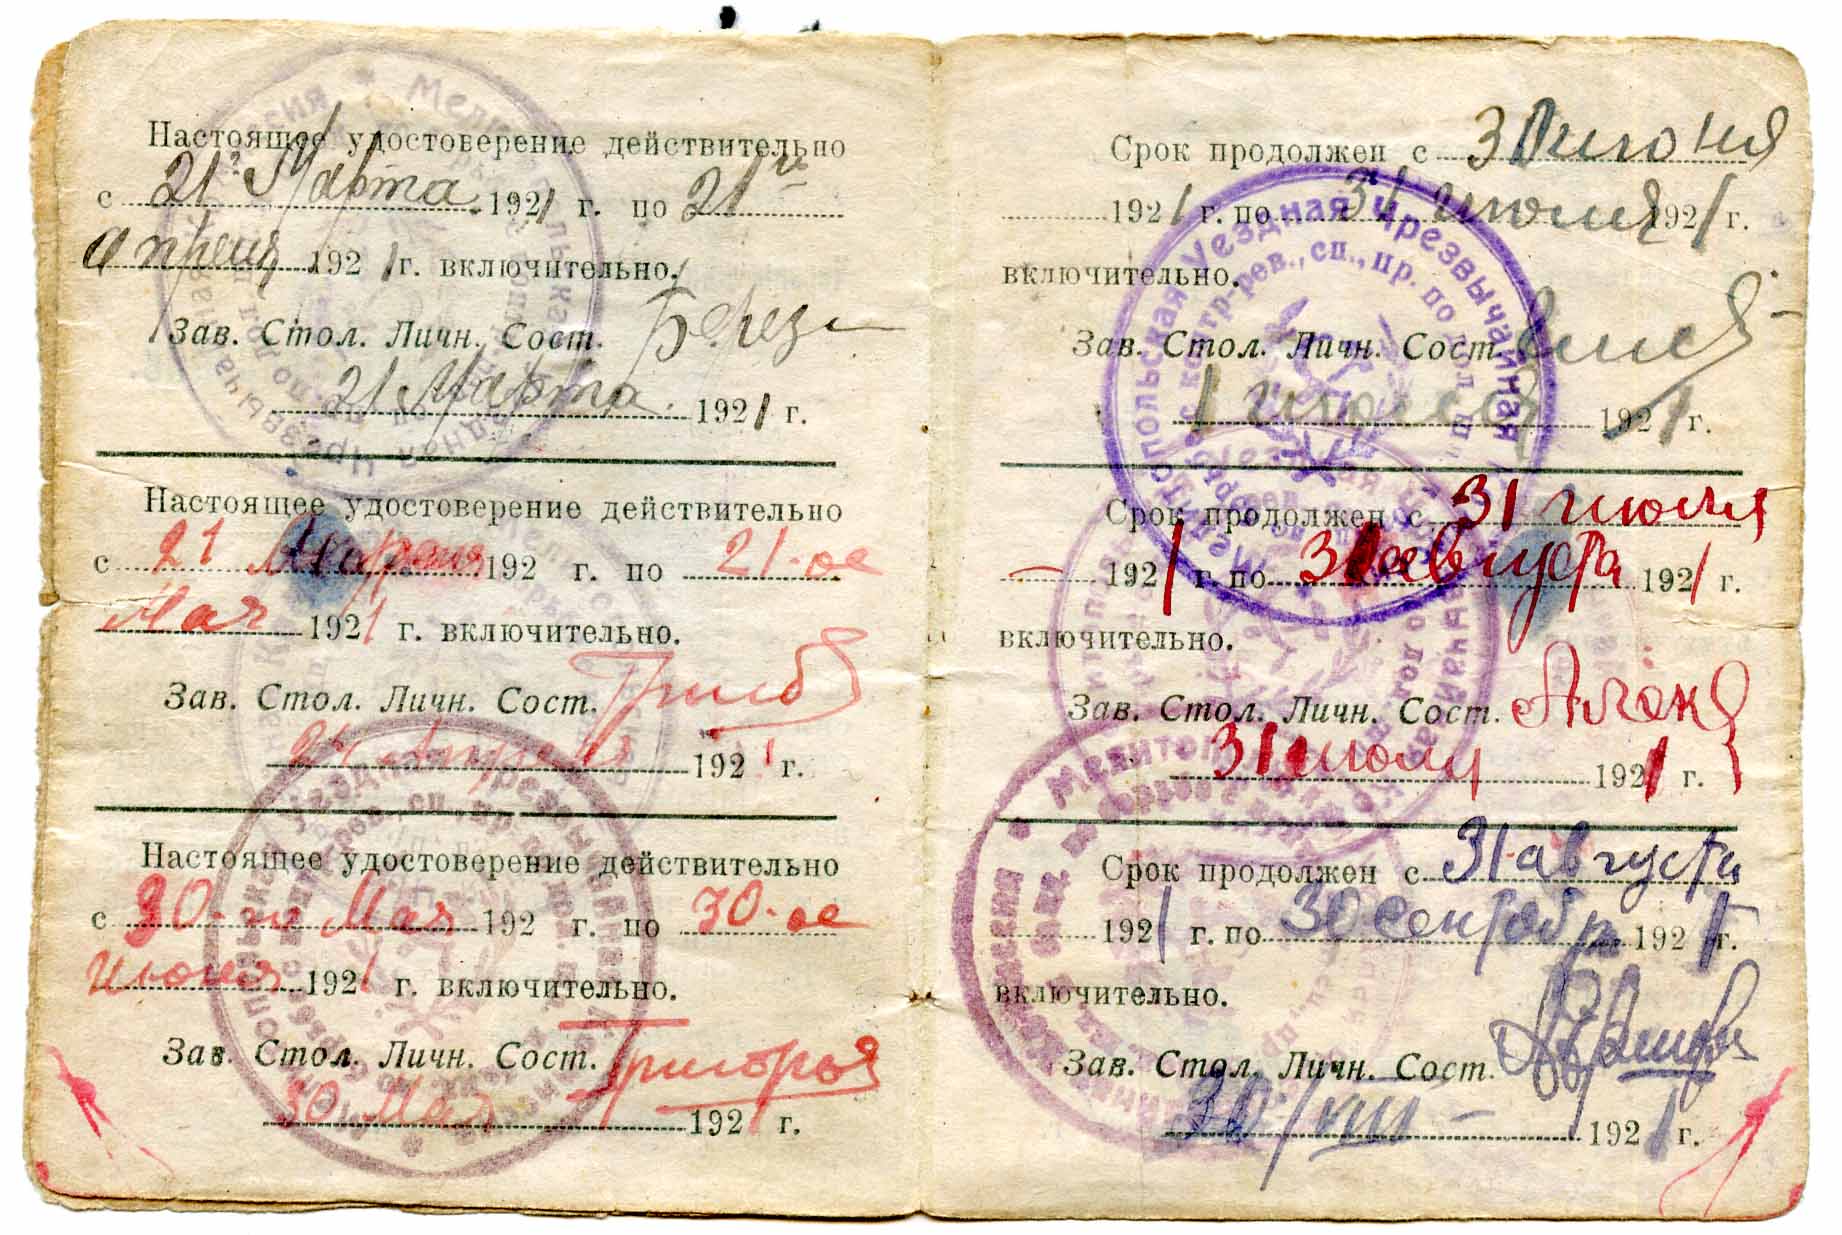 Настоящее удостоверение действительно
с 21го Марта 1921 г. по 21го
апреля 1921 г. включительно.
Зав. Стол. Личн. Сост.
21 Марта 1921 г.
Настоящее удостоверение действительно
с 21 Апреля 192 г. по 21-ое
Мая 1921 г. включительно.
Зав. Стол. Личн. Сост.
Апреля 1921 г.
Настоящее удостоверение действительно
с 30-го Мая 192 г. по 30-ое
Июня 1921 г. включительно.
Зав. Стол. Личн. Сост.
30 Мая 192 г.
Срок продолжен с 30 июня
1921 г. по 31 июля 1921 г.
включительно.
Зав. Стол. Личн. Сост.
1 1921 г.
Срок продолжен с 31 июля
1921 г. по 31 августа 1921 г.
включительно.
Зав. Стол. Личн. Сост.
31 июля 1921 г.
Срок продолжен с 31 августа
1921 г. по 30 сентября 1921 г.
включительно.
Зав. Стол. Личн. Сост.
30/VIII – 1921 г.
Мелитопольская Уездная Чрезвычайная
с контр-рев., сп., пр. по дол